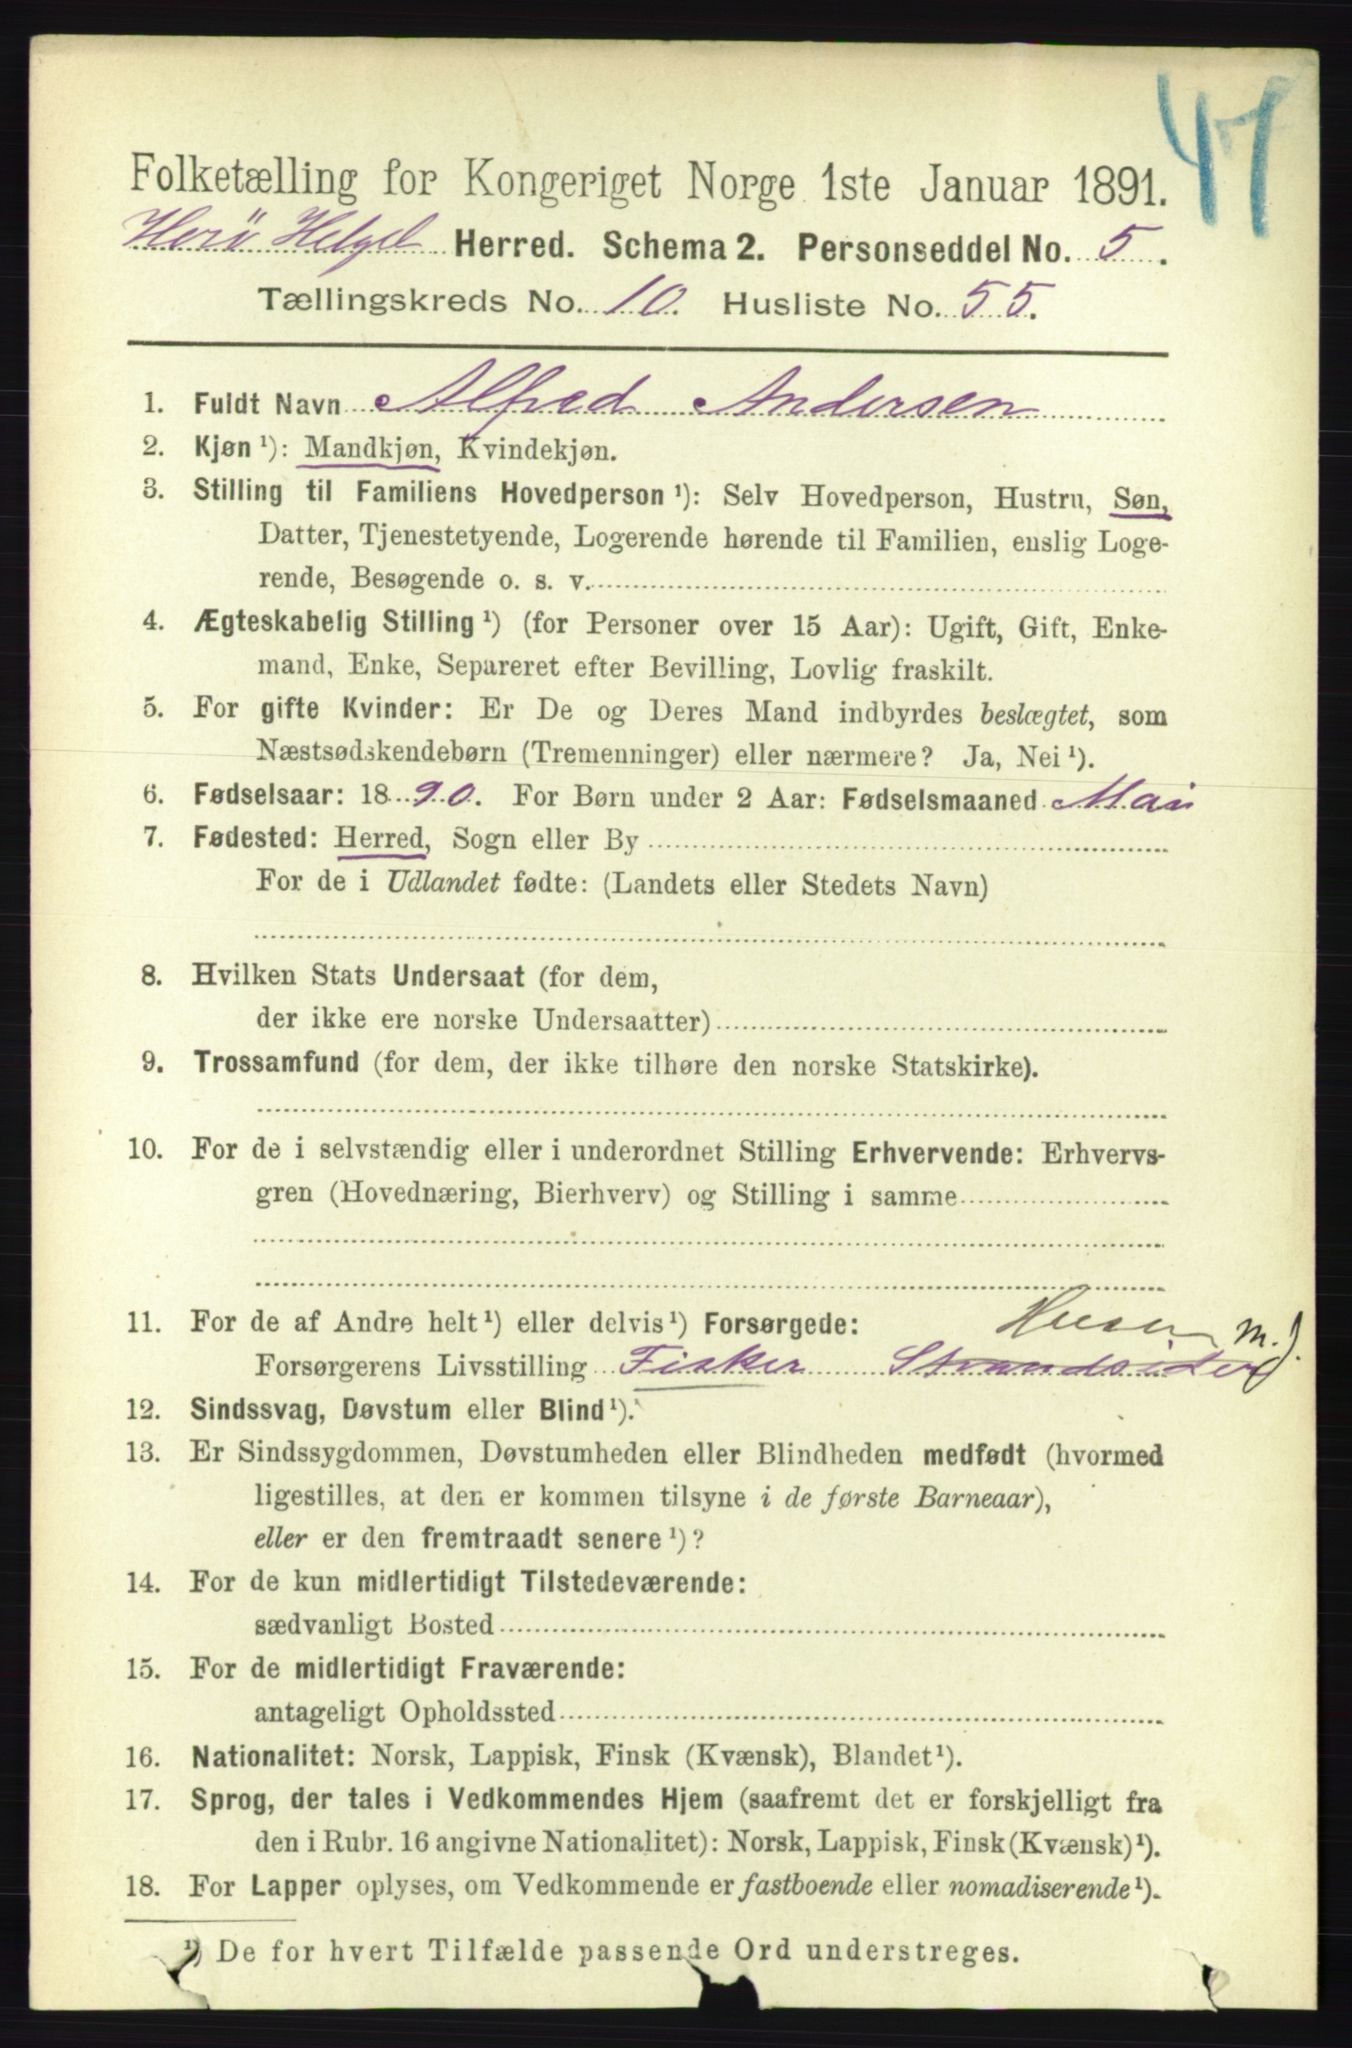 47
Folketælling for Kongeriget Norge 1ste Januar 1891.
Herö Helgel Herred. Schema 2. Personseddel No. 5.
Tællingskreds No. 10. Husliste No. 55.
1. Fuldt Navn Alfred Andersen
2. Kjøn ¹): Mandkjøn, Kvindekjøn.
3. Stilling til Familiens Hovedperson ¹): Selv Hovedperson, Hustru, Søn,
Datter, Tjenestetyende, Logerende hørende til Familien, enslig Loge-
rende, Besøgende o. s. v.
4. Ægteskabelig Stilling ¹) (for Personer over 15 Aar): Ugift, Gift, Enke-
mand, Enke, Separeret efter Bevilling, Lovlig fraskilt.
5. For gifte Kvinder: Er De og Deres Mand indbyrdes beslægtet, som
Næstsødskendebørn (Tremenninger) eller nærmere? Ja, Nei ¹).
6. Fødselsaar: 1890. For Børn under 2 Aar: Fødselsmaaned Mai
7. Fødested: Herred, Sogn eller By
For de i Udlandet fødte: (Landets eller Stedets Navn)
8. Hvilken Stats Undersaat (for dem,
der ikke ere norske Undersaatter)
9. Trossamfund (for dem, der ikke tilhøre den norske Statskirke).
10. For de i selvstændig eller i underordnet Stilling Erhvervende: Erhvervs-
gren (Hovednæring, Bierhverv) og Stilling i samme
11. For de af Andre helt ¹) eller delvis ¹) Forsørgede: m. J.
Forsørgerens Livsstilling Fisker Strandsider
12. Sindssvag, Døvstum eller Blind ¹).
13. Er Sindssygdommen, Døvstumheden eller Blindheden medfødt (hvormed
ligestilles, at den er kommen tilsyne i de første Barneaar),
eller er den fremtraadt senere ¹)?
14. For de kun midlertidigt Tilstedeværende:
sædvanligt Bosted
15. For de midlertidigt Fraværende:
antageligt Opholdssted
16. Nationalitet: Norsk, Lappisk, Finsk (Kvænsk), Blandet ¹).
17. Sprog, der tales i Vedkommendes Hjem (saafremt det er forskjelligt fra
den i Rubr. 16 angivne Nationalitet): Norsk, Lappisk, Finsk (Kvænsk) ¹).
18. For Lapper oplyses, om Vedkommende er fastboende eller nomadiserende ¹).
¹) De for hvert Tilfælde passende Ord understreges.